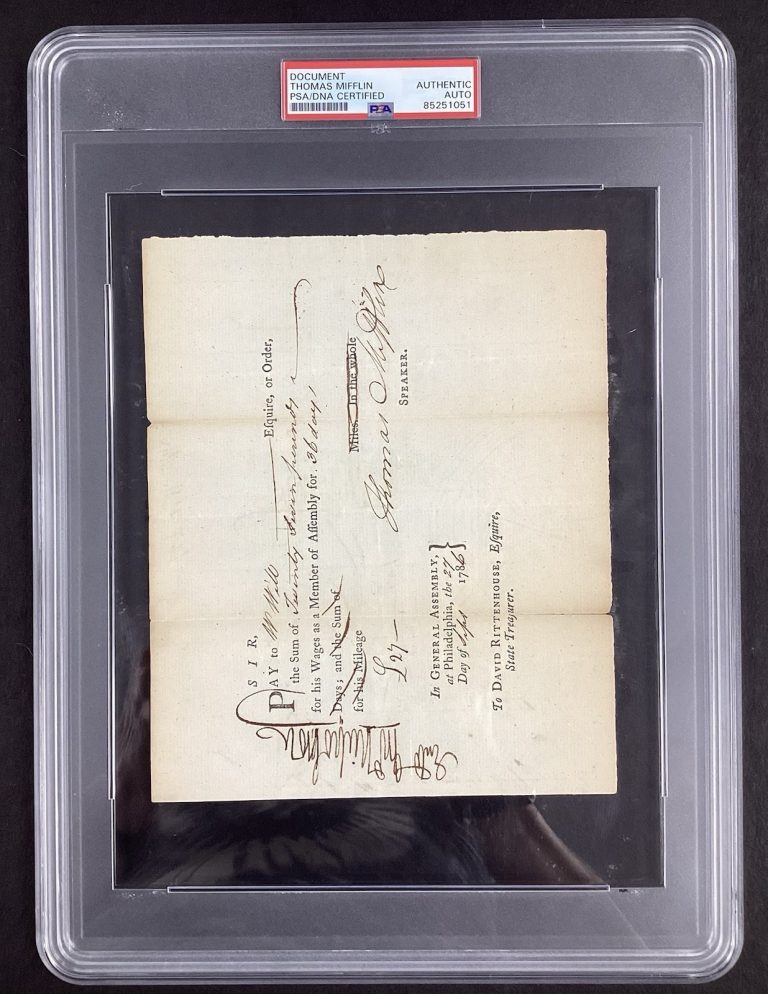 DOCUMENT
THOMAS MIFFLIN
PSA/DNA CERTIFIED
AUTHENTIC
AUTO
85251051
PSA
SIR,
PAY to Wm Will Eſquire, or Order,
the Sum of Twenty Seven pounds
for his Wages as a Member of Aſſembly for 36 days
Days; and the Sum of
for his Mileage Miles. In the whole
£27—
Thomas Mifflin
SPEAKER.
In GENERAL ASSEMBLY,
at Philadelphia, the 27
Day of Sept 1786
To DAVID RITTENHOUSE, Eſquire,
State Treaſurer.